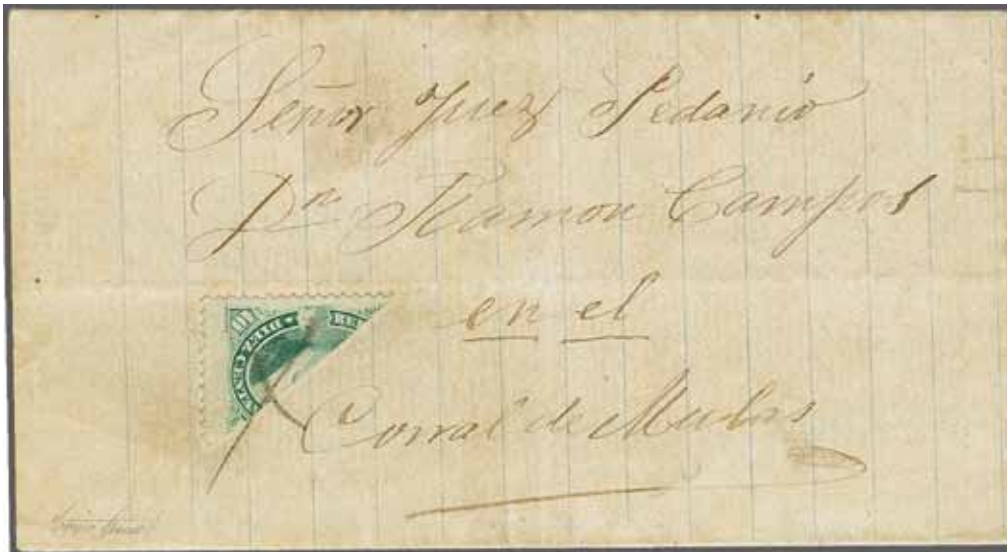 Señor Juez Pedanio
Dn Ramon Campos
en el
Corral de Mulas
DIEZ CENT
RE